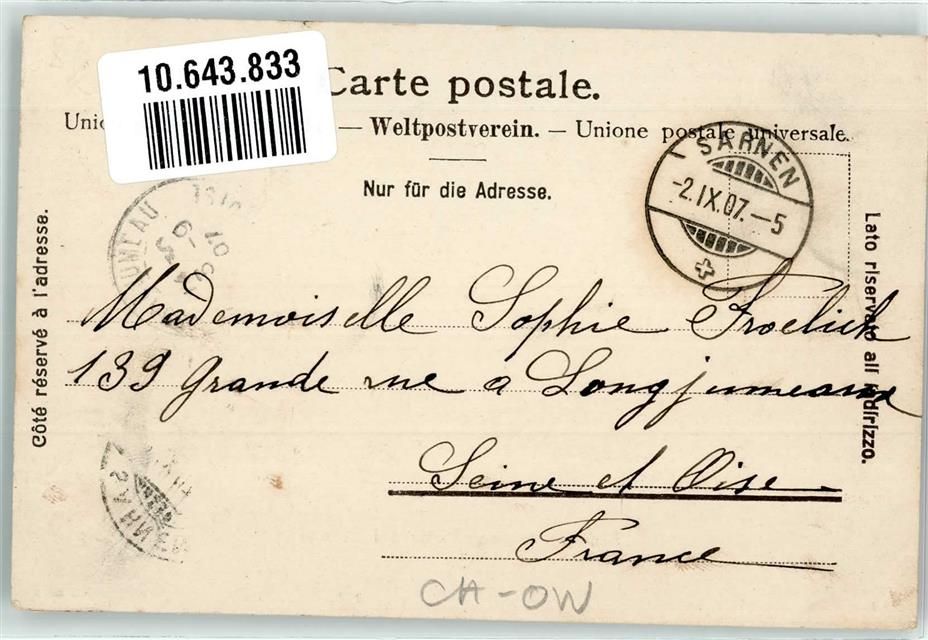 10.643.833
Carte postale.
— Weltpostverein. — Unione postale universale.
Nur für die Adresse.
SARNEN
-2.IX.07.-5
Côté réservé à l'adresse.
Lato riservato all'indirizzo.
Mademoiselle Sophie Froelich
139 Grande rue a Longjumeaux
Seine et Oise
France
CH-OW